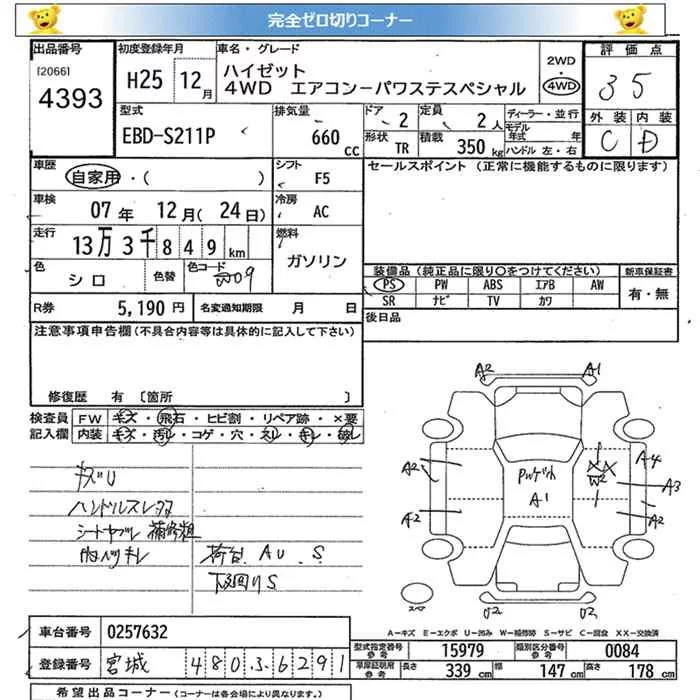 完全ゼロ切りコーナー
出品番号
[2066]
4393
初度登録年月
H25 12月
車名・グレード
ハイゼット
4WD エアコンーパワステスペシャル
2WD
4WD
評価点
35
外装 内装
C D
型式
EBD-S211P
排気量
660 CC
ドア 2
定員 2人
ディーラー・並行
モデル
年式 年
形状 TR
積載 350 kg
ハンドル 左・右
車歴
自家用・( )
シフト F5
セールスポイント (正常に機能するものに限ります)
車検
07年 12月(24日)
冷房 AC
走行
13万3千849km
燃料
ガソリン
色
シロ
色替
色コード
W09
装備品 (純正品に限り○をつけてください)
新車保証書
PS PW ABS エアB AW
有・無
SR ナビ TV カワ
R券 5,190円
名変通知期限 月 日
後日品
注意事項申告欄(不具合内容等は具体的に記入して下さい)
修復歴 有 [箇所 ]
検査員
記入欄
FW キズ・飛石・ヒビ割・リペア跡・×要
内装 キズ・汚レ・コゲ・穴・スレ・キレ・破レ
キズU
ハンドルスレ
シートヤブレ 補修粗
内ハリキレ
荷台 AU.S
下廻りS
A2 A1
A2
A2
A1
XX
W2
A4
A3
A2
U2 U2
スペア
A-キズ E-エクボ U-凹み W-補修跡 S-サビ C-腐食 XX-交換済
車台番号 0257632
登録番号 宮城 480 3 6291
型式指定番号
参考
15979
類別区分番号
参考
0084
車庫証明用
参考
長さ 339 cm
幅 147 cm
高さ 178 cm
希望出品コーナー (コーナーは各会場により異なります。)